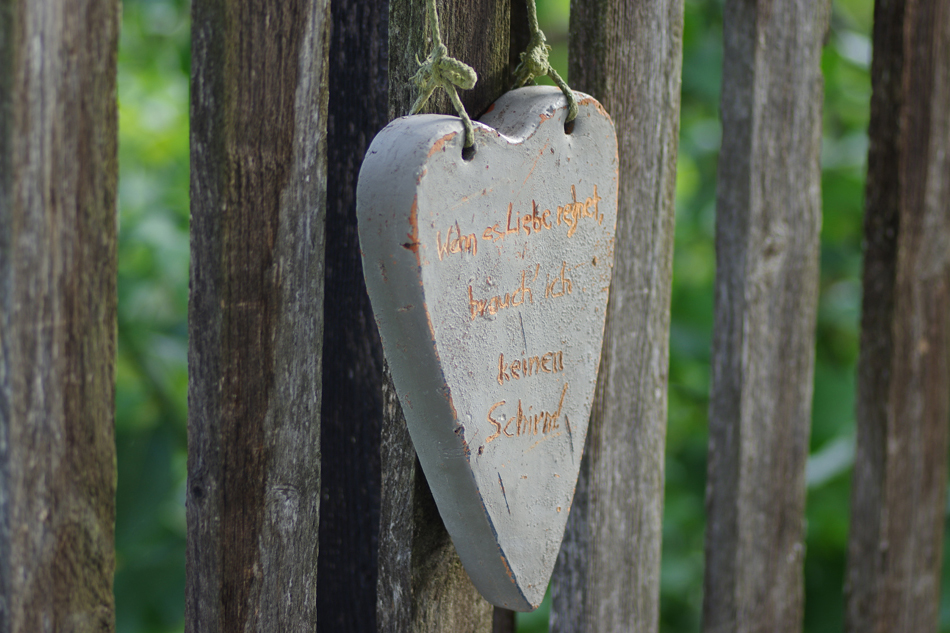 Wenn es Liebe regnet,
brauch' ich
keinen
Schirm!